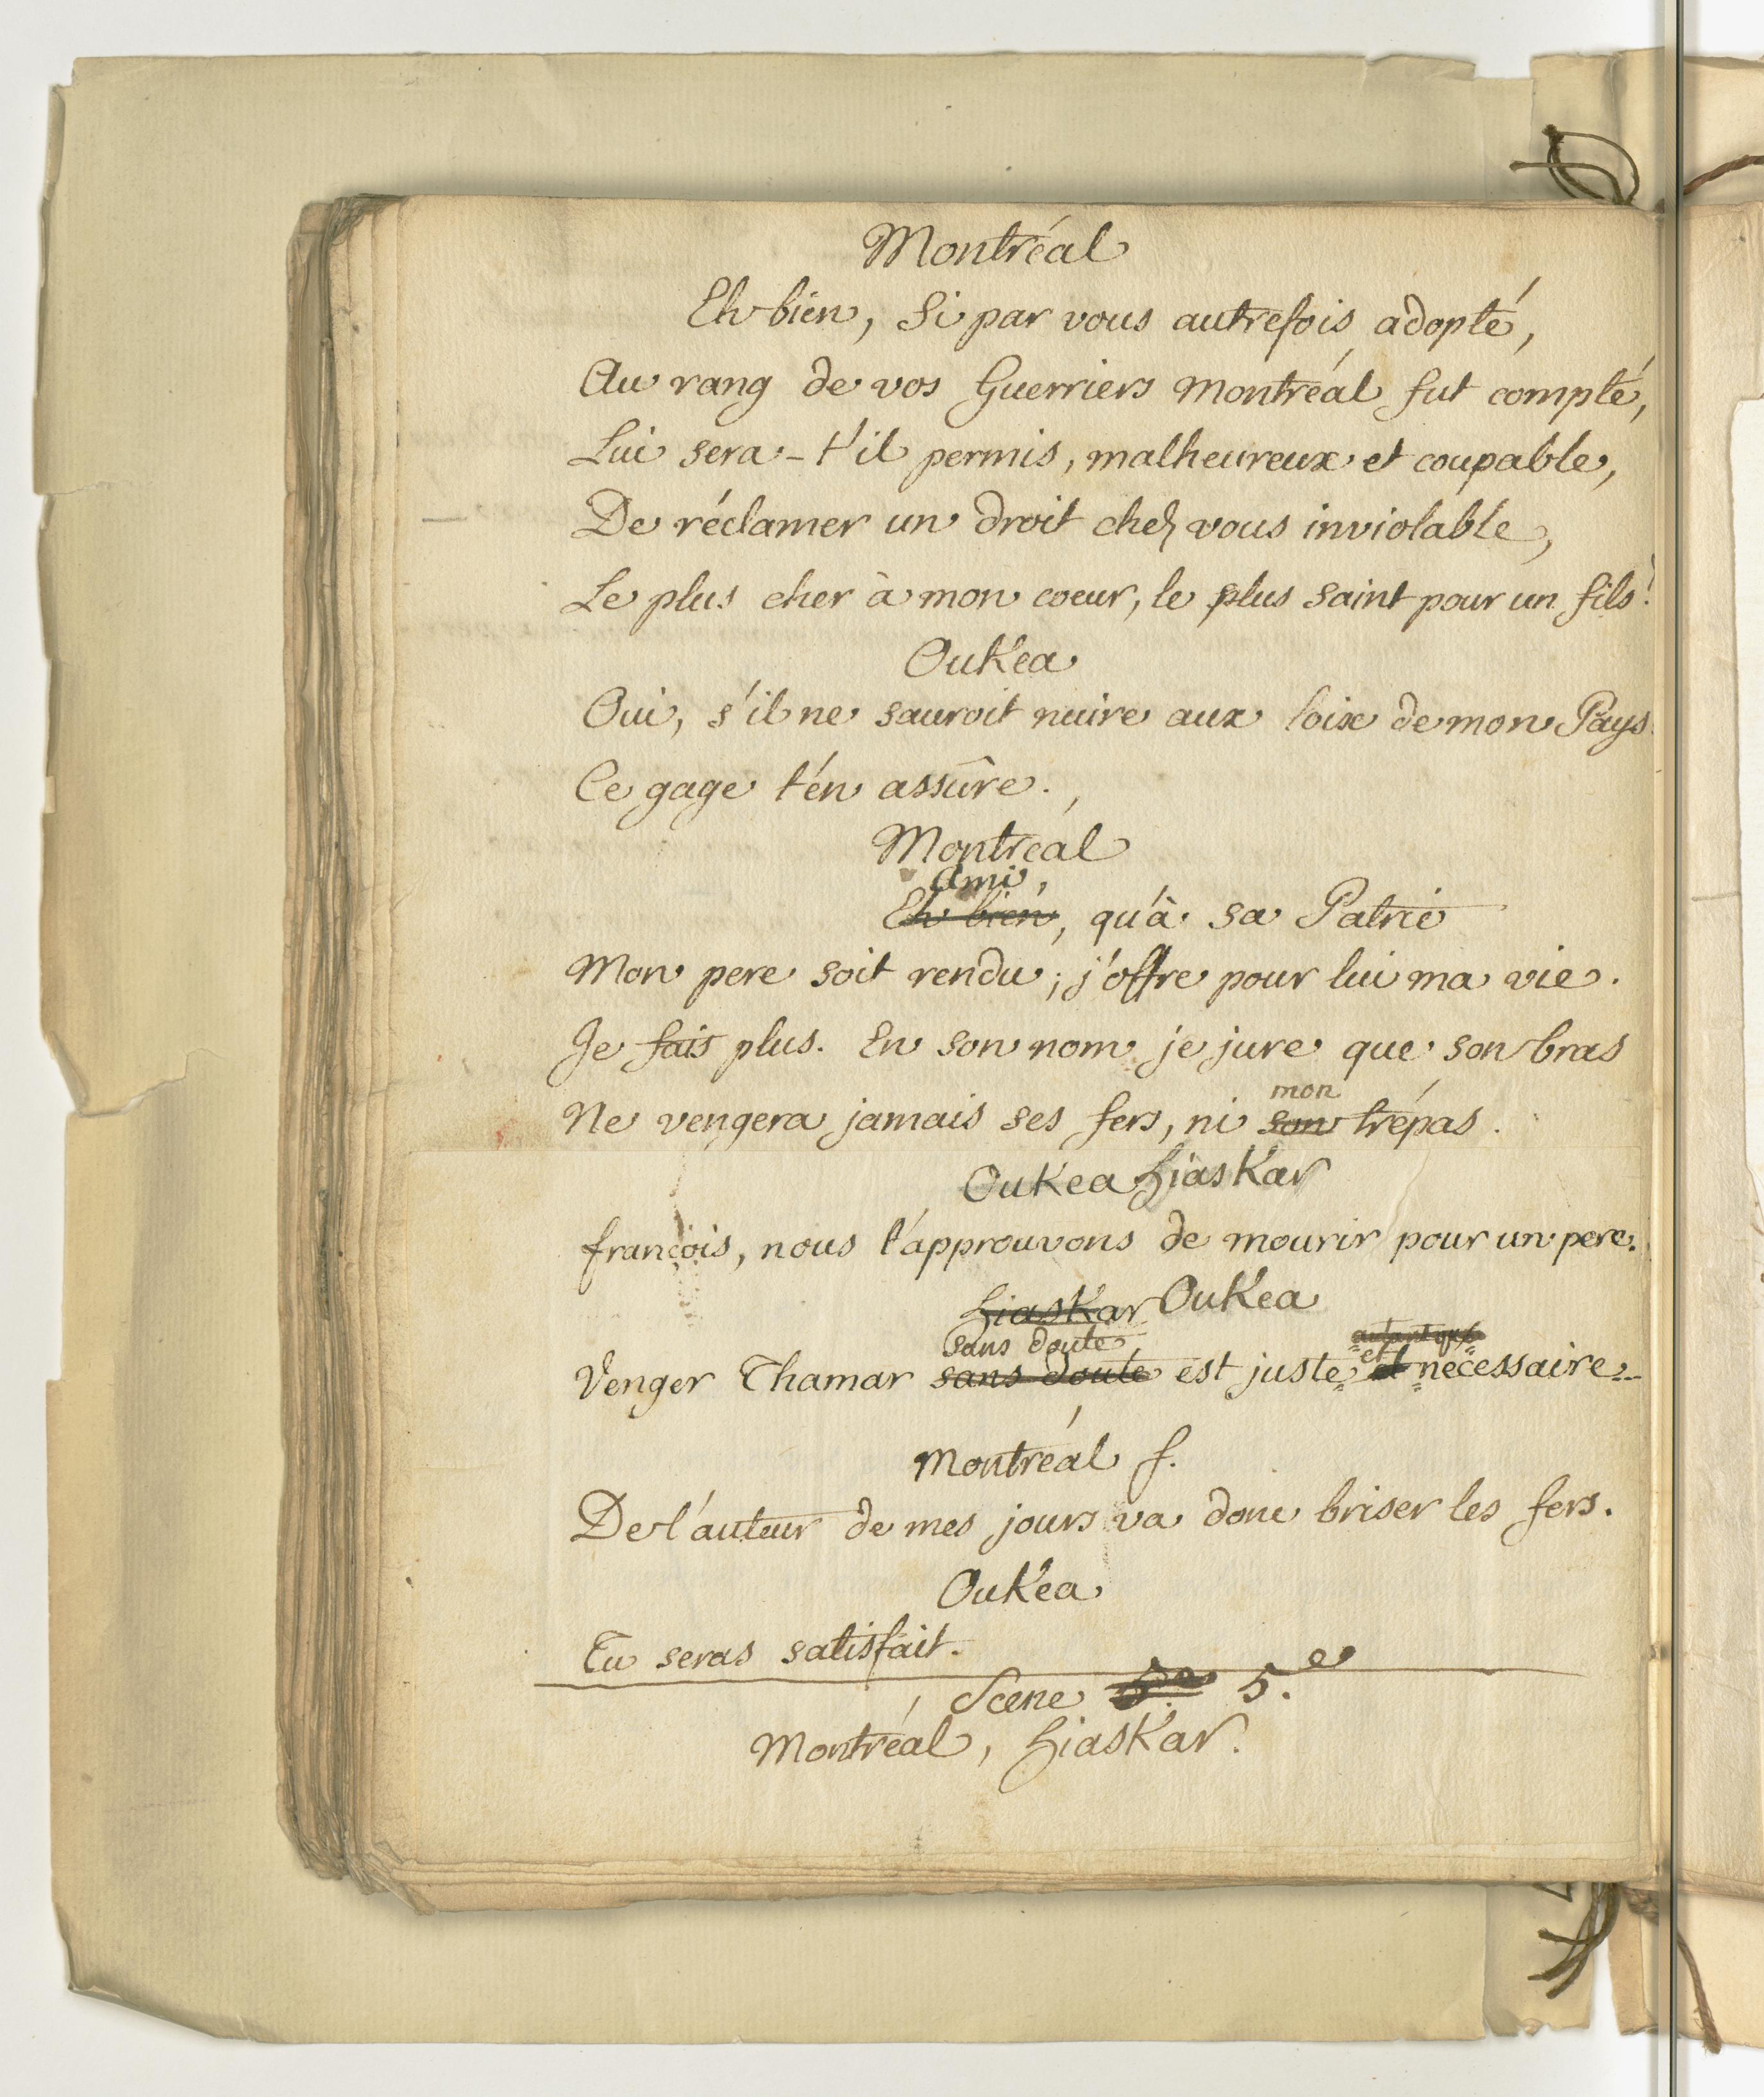 Montréal
Eh bien, Si par vous autrefois adopté,
Au rang de vos Guerriers Montréal fut compté,
Lui sera-t'il permis, malheureux et coupable,
De réclamer un droit chez vous inviolable,
Le plus cher à mon coeur, le plus saint pour un fils?
OuKéa
Oui, s'il ne sauroit nuire aux loix de mon Pays.
Ce gage t'en assûre.
Montréal
Ami,
Eh bien, qu'à sa Patrie
Mon pere soit rendu; j'offre pour lui ma vie.
Je fais plus. En son nom je jure que son bras
mon
Ne vengera jamais ses fers, ni son trépas.
OuKea HiasKar
françois, nous t'approuvons de mourir pour un pere.
HiasKar OuKea
sans doute, autant que
et
Venger Thamar sans doute est juste et nécessaire.
Montréal f.
De l'auteur de mes jours va donc briser les fers.
OuKéa
Tu seras satisfait.
Scene 5.e 5.e
Montréal, HiasKar.